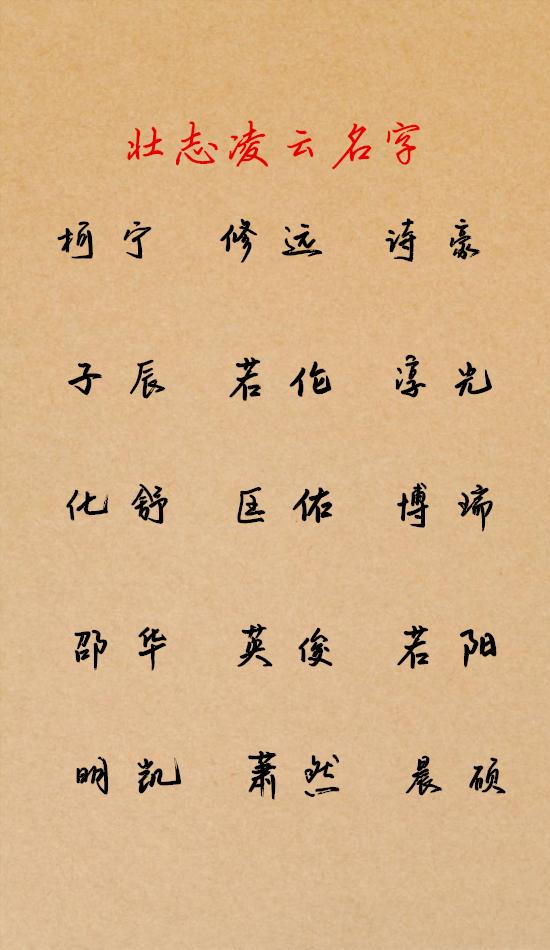 壮志凌云名字
柯宁 修远 诗豪
子辰 若伦 淳光
化舒 匡佑 博瑞
邵华 英俊 若阳
明凯 萧然 晨硕